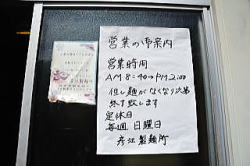 営業の御案内
営業時間
AM8:40〜PM2:00
但し麺がなくなり次第
終了致します
定休日
毎週 日曜日
彦江製麺所